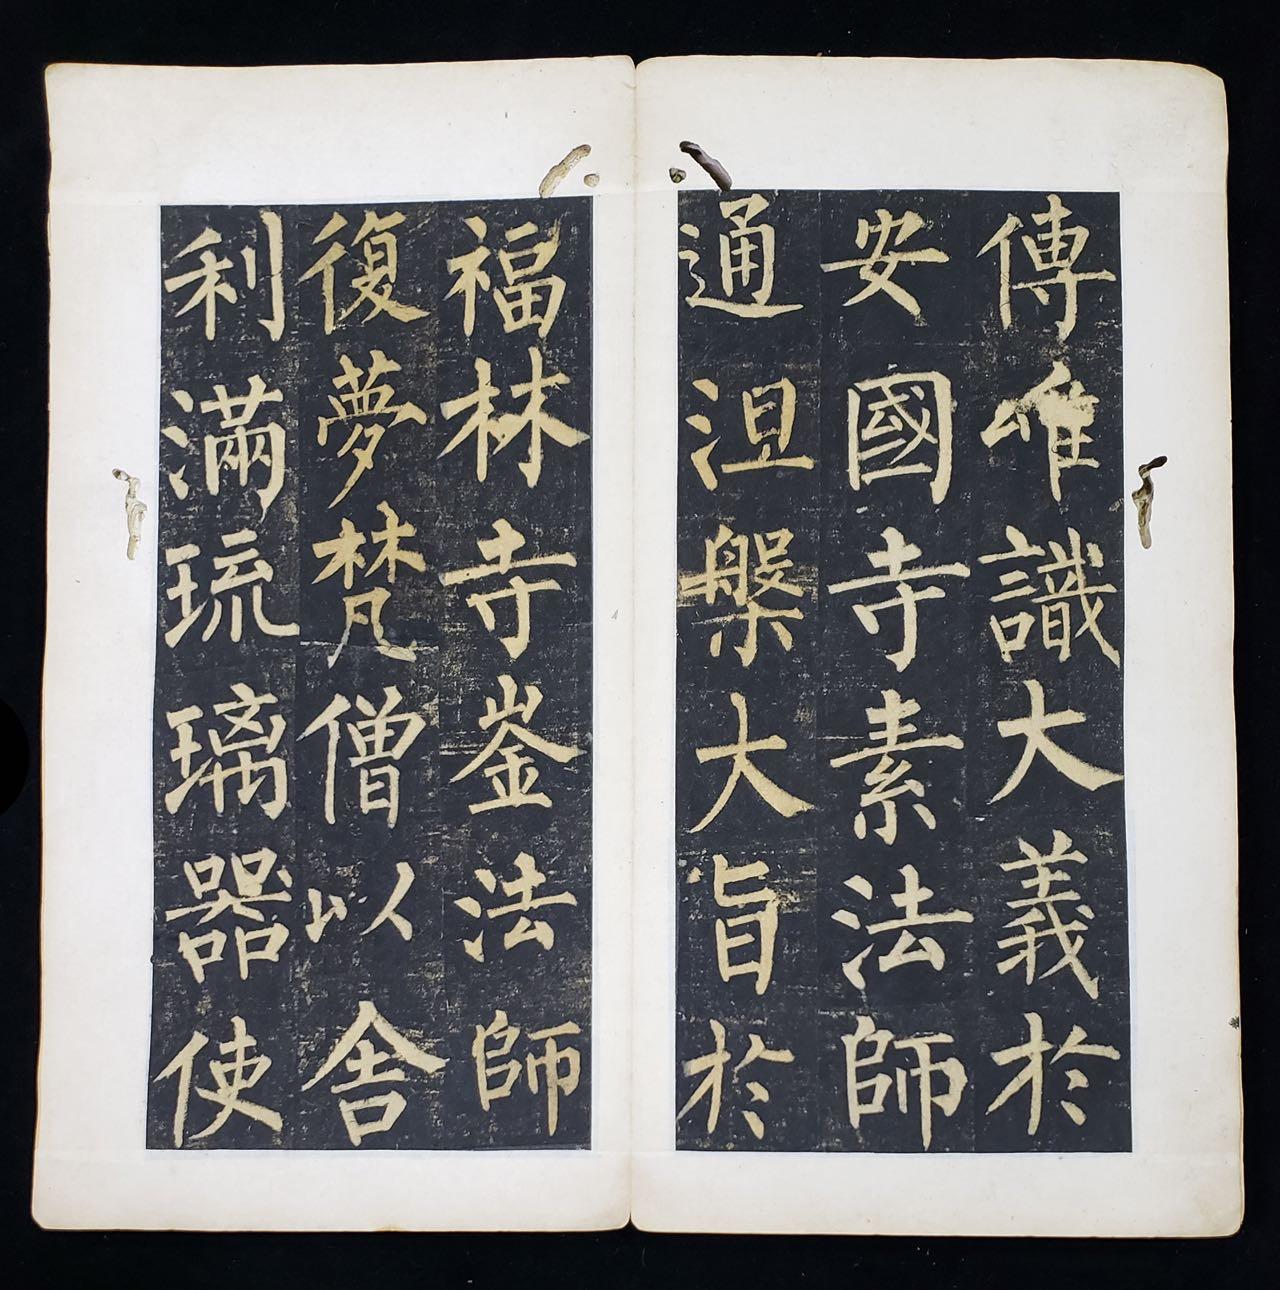 傳唯識大義於
安國寺素法師
通涅槃大旨於
福林寺崟法師
復夢梵僧以舍
利滿琉璃器使